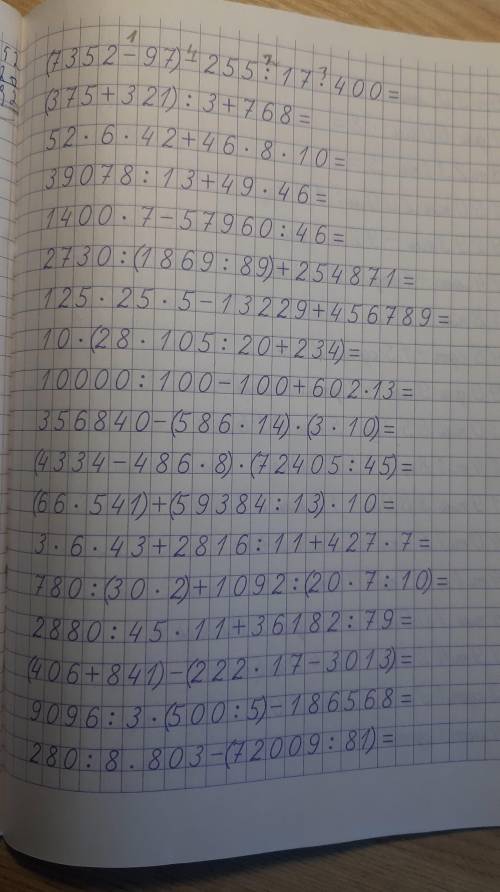 (7352-97)-255:17:400=
(375+321):3+768=
52·6·42+46·8·10=
39078:13+49·46=
1400·7-57960:46=
2730:(1869:89)+254871=
125·25·5-13229+456789=
10·(28·105:20+234)=
10000:100-100+602·13=
356840-(586·14)·(3·10)=
(4334-486·8)·(72405:45)=
(66·541)+(59384:13)·10=
3·6·43+2816:11+427·7=
780:(30·2)+1092:(20·7:10)=
2880:45·11+36182:79=
(406+841)-(222·17-3013)=
9096:3·(500:5)-186568=
280:8·803-(72009:81)=